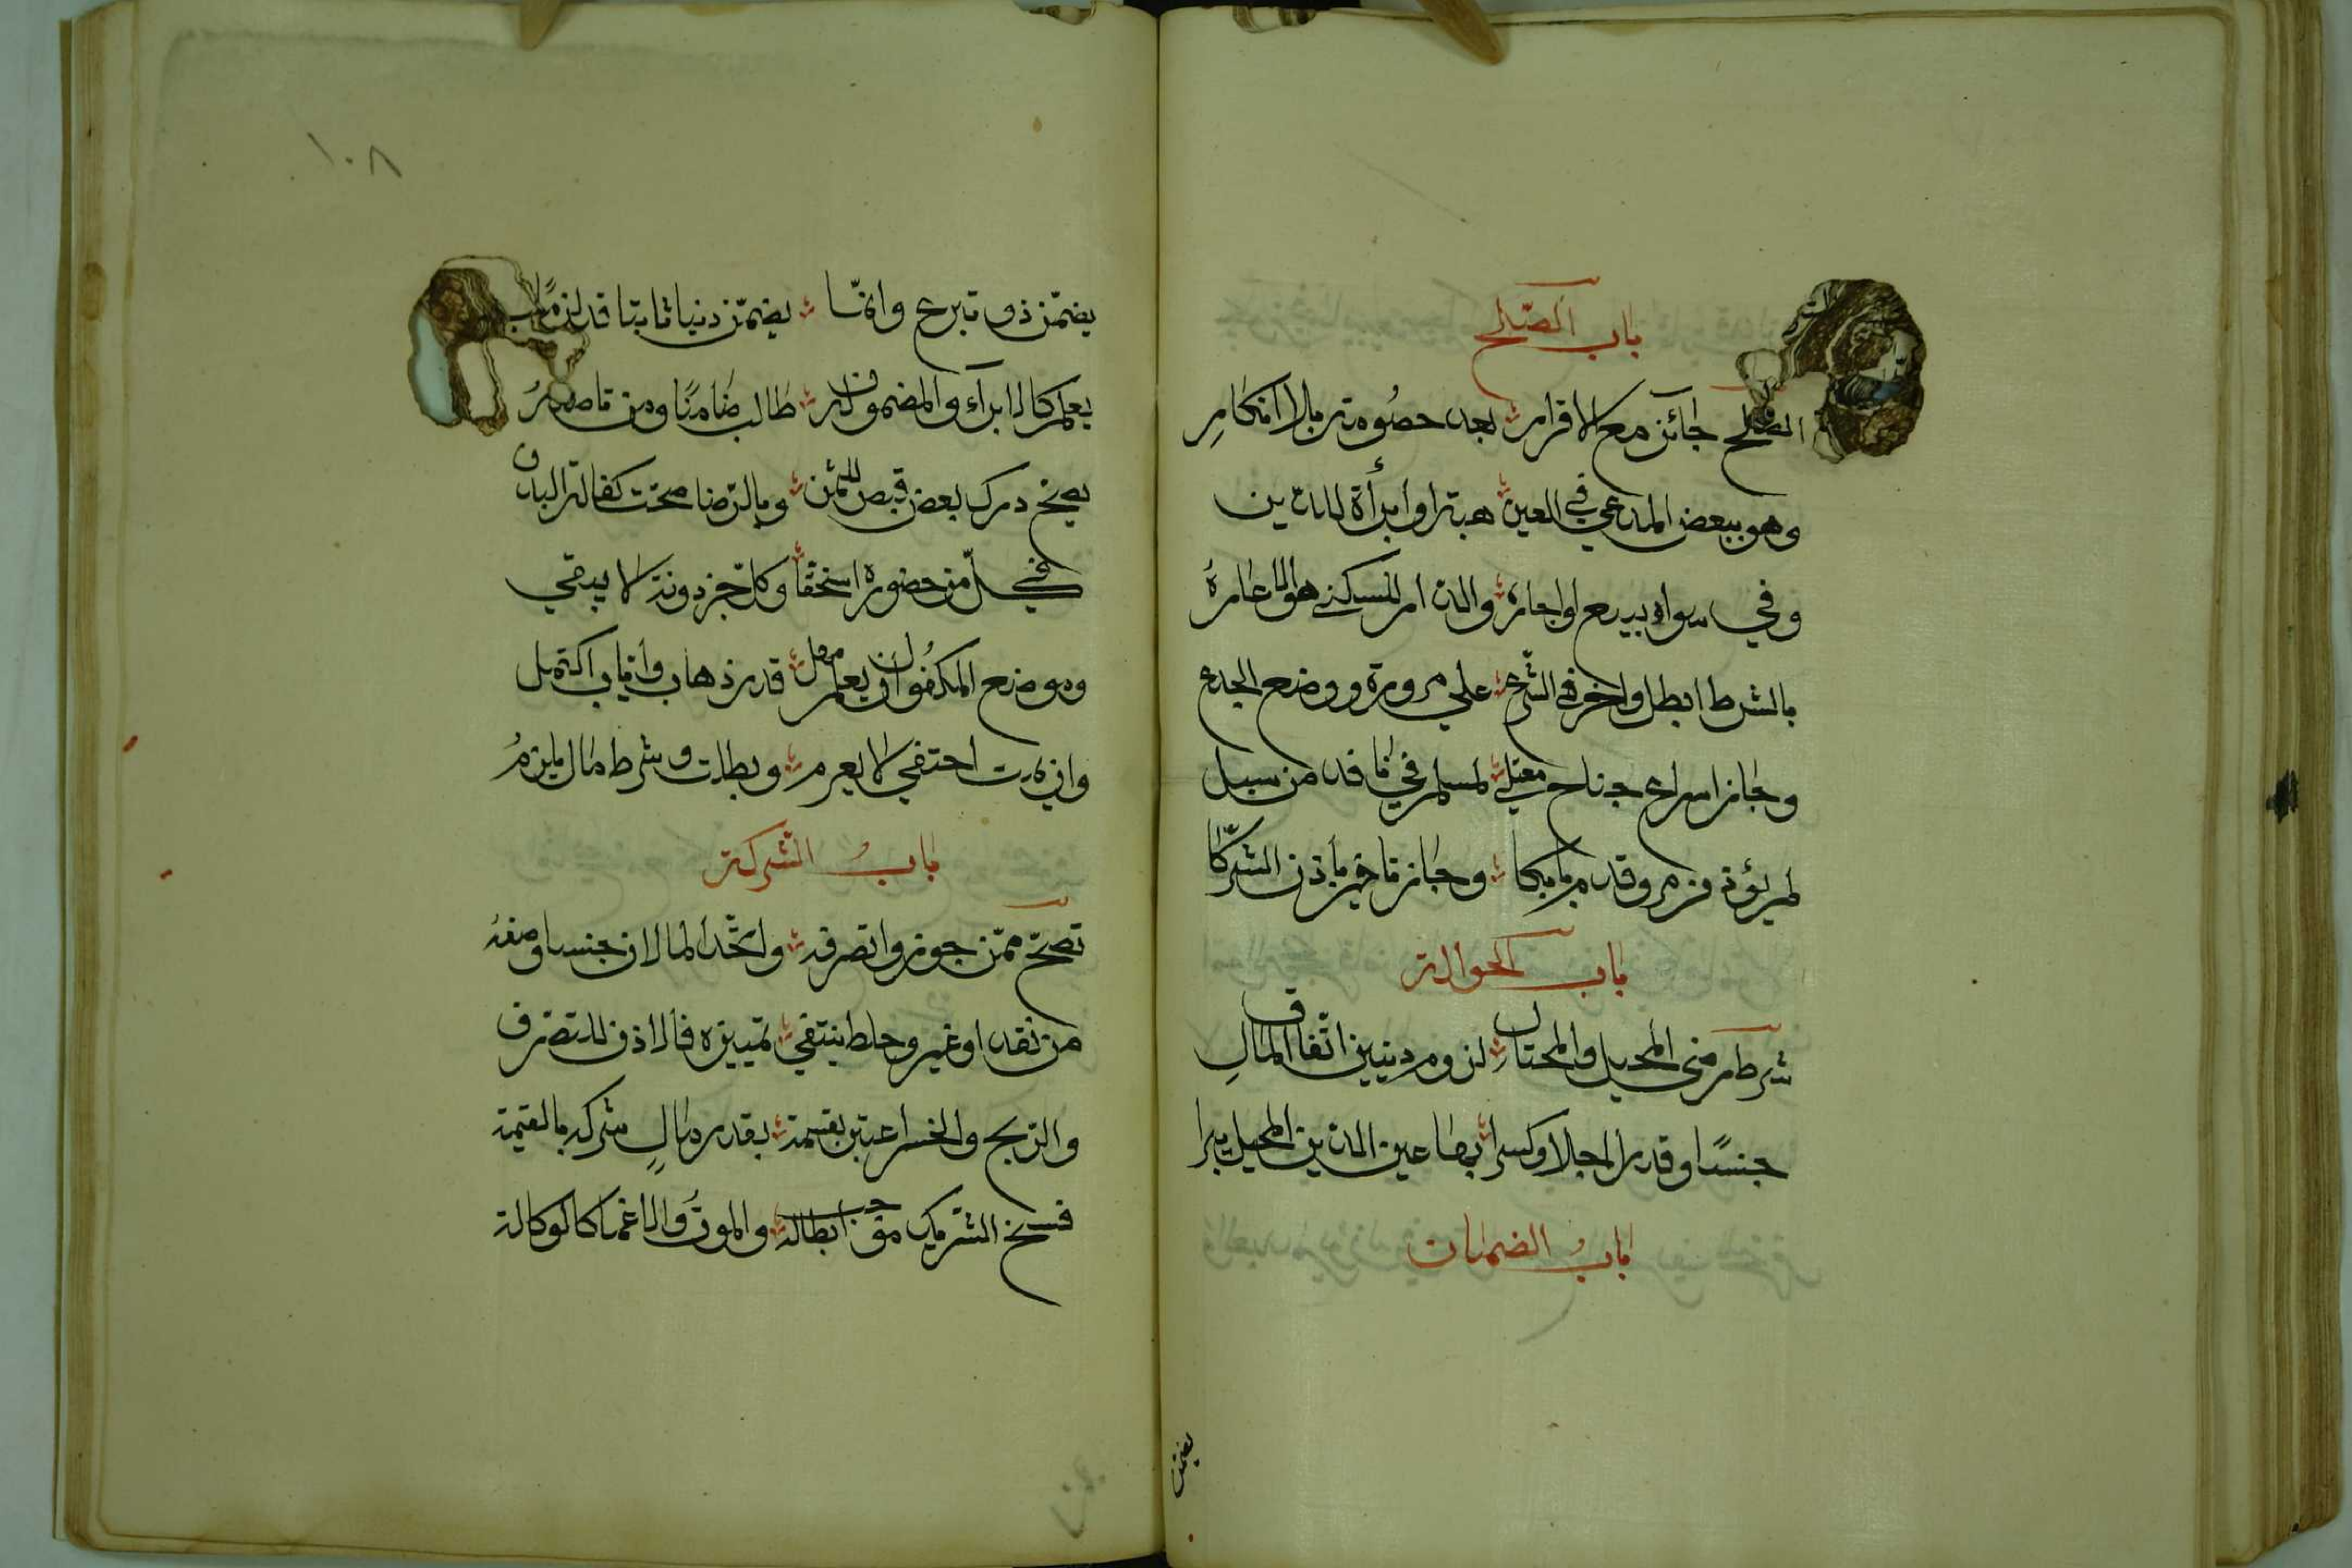 باب الصلح
الصلح جائز مع الاقرار بعد خصومة بالا انكار
وهو ببعض المدعي في العين هبة او ابرأة للدين
وفي سواه بيع او اجارة والدار للسكنى هو الاعارة
بالشرط ابطل واخر في الشرع علي مرورة ووضع الجدع
وجاز اسراع جناح معتلي لمسلم في نافد من سبل
لم يؤذ من مر وقدم بابكا وجاز تاخير بأذن الشركا
باب الحوالة
شرط رضي المحيل والمحتال لزوم دينين اتفاق المال
جنسًا وقدرا اجالا وكسرا بها عين الدين المحيل يبرا
باب الضمان
يضمن
١٠٨
يضمن ذو تبرع وانما يضمن دينا ثابتا قد لزما
يعلم كالابرآء والمضمون له طالب ضامنًا ومن تاصله
يصح درك بعض قبض للثمن وبالرضا صحت كفالة البدن
في كل من حضوره استحقا وكل جزء دونه لا يبقي
وموضع المكفول ان يعلم مهل قدر ذهاب واياب اكتمل
وان يمت اختفي لا يغرم وبطلت وشرط مال يلزم
باب الشركة
تصح ممن جوزوا تصرفه واتحد المالان جنسا وصفه
من نقد او غير وخلط ينتفي تمييزه فالاذن للتصرف
والربح والخسر اعتبر بقسمة بقدر مال شركه بالقيمة
فسخ الشريك موجب ابطاله والموت والاغما كالوكالة